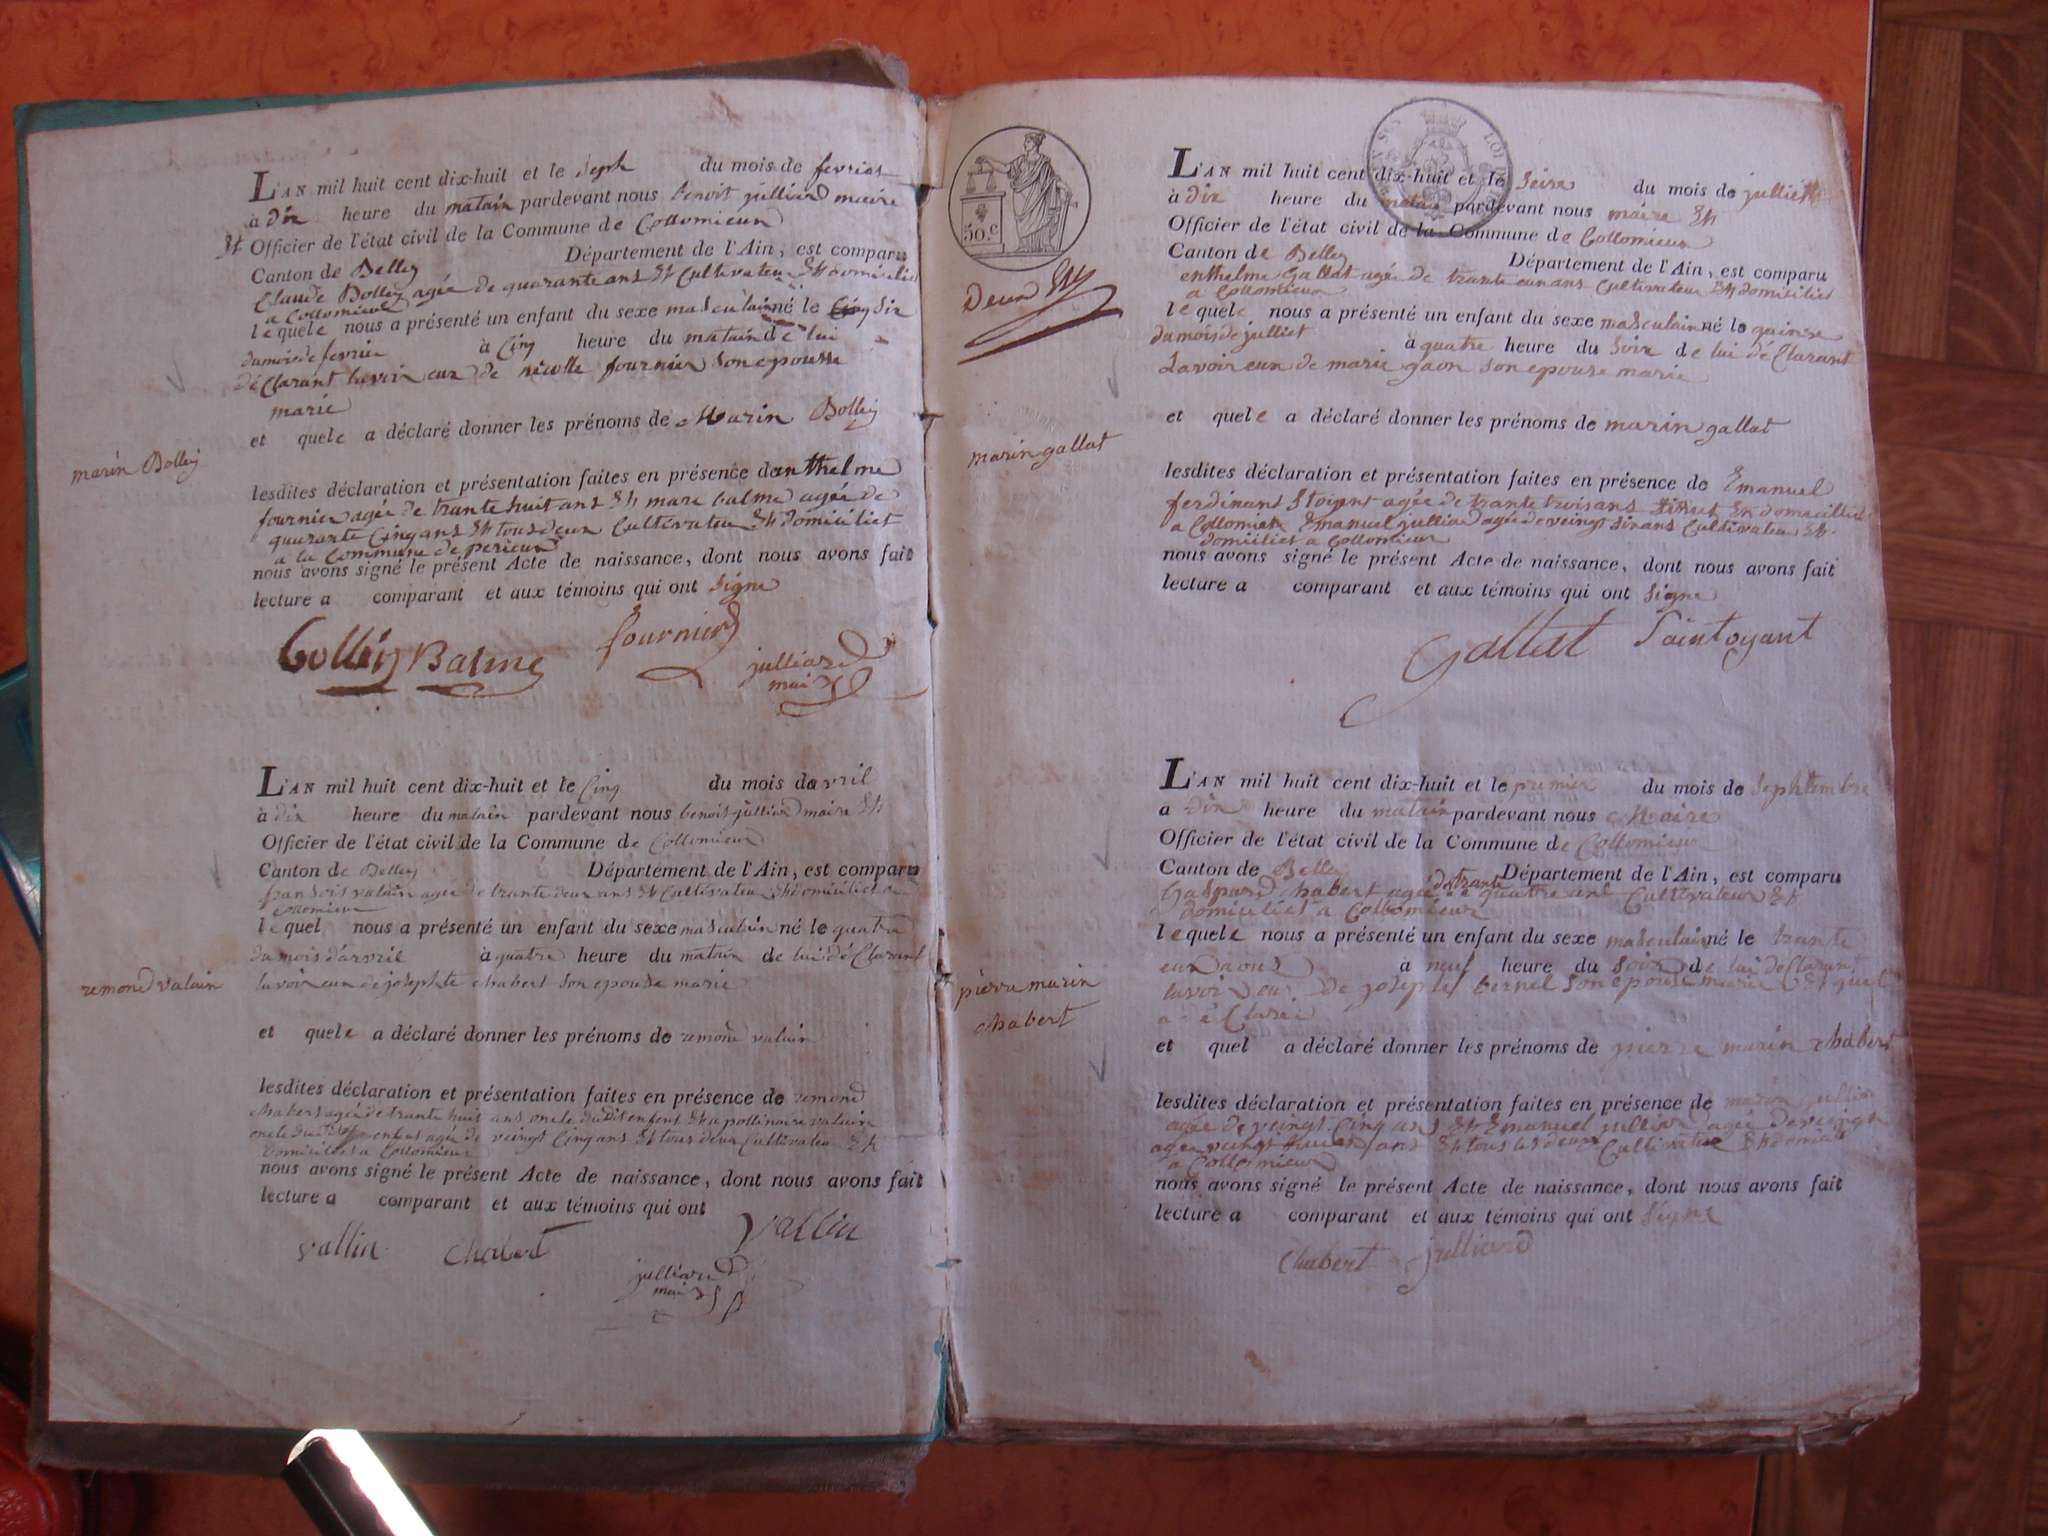 L'AN mil huit cent dix-huit et le Sept du mois de fevrier
à dix heure du matain pardevant nous benoit julliard maire
Et Officier de l'état civil de la Commune de Collomieux
Canton de Belley Département de l'Ain, est comparu
Claude Bolley agée de quarante ans Et Cultivateur Et domicilies
a Collomieux
lequele nous a présenté un enfant du sexe masculain né le six
du mois de fevrier à Cinq heure du matain de lui
déClarant lavoir eux de nicolle fournier son epousse
marie
et quele a déclaré donner les prénoms de Marin Bolley
marin Bolley
lesdites déclaration et présentation faites en présence danthelme
fournier agée de trante huit ans Et marc balme agée de
quarante Cinq ans Et tous deux Cultivateu Et domiciliet
a la Commune de perieux
nous avons signé le présent Acte de naissance, dont nous avons fait
lecture a comparant et aux témoins qui ont signe
bolley Balme fournier
julliard
maire
L'AN mil huit cent dix-huit et le Cinq du mois davril
à dix heure du matain pardevant nous benoit julliard maire Et
Officier de l'état civil de la Commune de Collomieux
Canton de Belley Département de l'Ain, est comparu
fransois valain agée de trante deux ans Et Cultivateu Et domiciliet a
Collomieux
lequel nous a présenté un enfant du sexe masculain né le quatre
du mois d'avril à quatre heure du matain de lui déClarant
lavoir eux de josephte chabert son epouse marie
remond valain
et quele a déclaré donner les prénoms de remond valain
lesdites déclaration et présentation faites en présence de remond
chabert agée de trante huit ans oncle dudit enfent Et apollinaire valain
oncle dudit enfent agée de veingt Cinq ans Et tous deux Cultivateu Et
domicilies a Collomieux
nous avons signé le présent Acte de naissance, dont nous avons fait
lecture a comparant et aux témoins qui ont
vallin chabert vallin
julliard
maire
50.c
Deux
L'AN mil huit cent dix-huit et le seize du mois de julliet
à dix heure du matain pardevant nous maire Et
Officier de l'état civil de la Commune de Collomieux
Canton de Belley Département de l'Ain, est comparu
enthelme gallat agée de trante eun ans Cultivateu Et domiciliet
a Collomieux
lequele nous a présenté un enfant du sexe masculain né le quinze
du mois de julliet à quatre heure du soir de lui déClarant
Lavoir eun de marie gaon son epouse marie
et quele a déclaré donner les prénoms de marin gallat
marin gallat
lesdites déclaration et présentation faites en présence de Emanuel
ferdinant Stoiyent agée de trante troisans Et domicilliet
a Collomieux Emanuel julliard agée de veingt six ans Cultivateu Et
domicilies a Collomieux
nous avons signé le présent Acte de naissance, dont nous avons fait
lecture a comparant et aux témoins qui ont signe
Gallat Saintoyant
L'AN mil huit cent dix-huit et le premier du mois de Sephtembre
a dix heure du matain pardevant nous Maire
Officier de l'état civil de la Commune de Collomieux
Canton de Belley Département de l'Ain, est comparu
gaspard chabert agée de trante quatre ans Cultivateur Et
domiciliet a Collomieux
lequele nous a présenté un enfant du sexe masculain né le trante
eun aous à neuf heure du soir de lui déClarant
lavoir eux de josephte bernel son epouse marie Et quel
a déClaré
et quel a déclaré donner les prénoms de pierre marin chabert
pierre marin
chabert
lesdites déclaration et présentation faites en présence de marin jullion
agée de veingt Cinq ans Et Emanuel julliard agée de veingt
ans Et tous les deux Cultivateu Et domicilie
a Collomieux
nous avons signé le présent Acte de naissance, dont nous avons fait
lecture a comparant et aux témoins qui ont signe
Chabert julliard